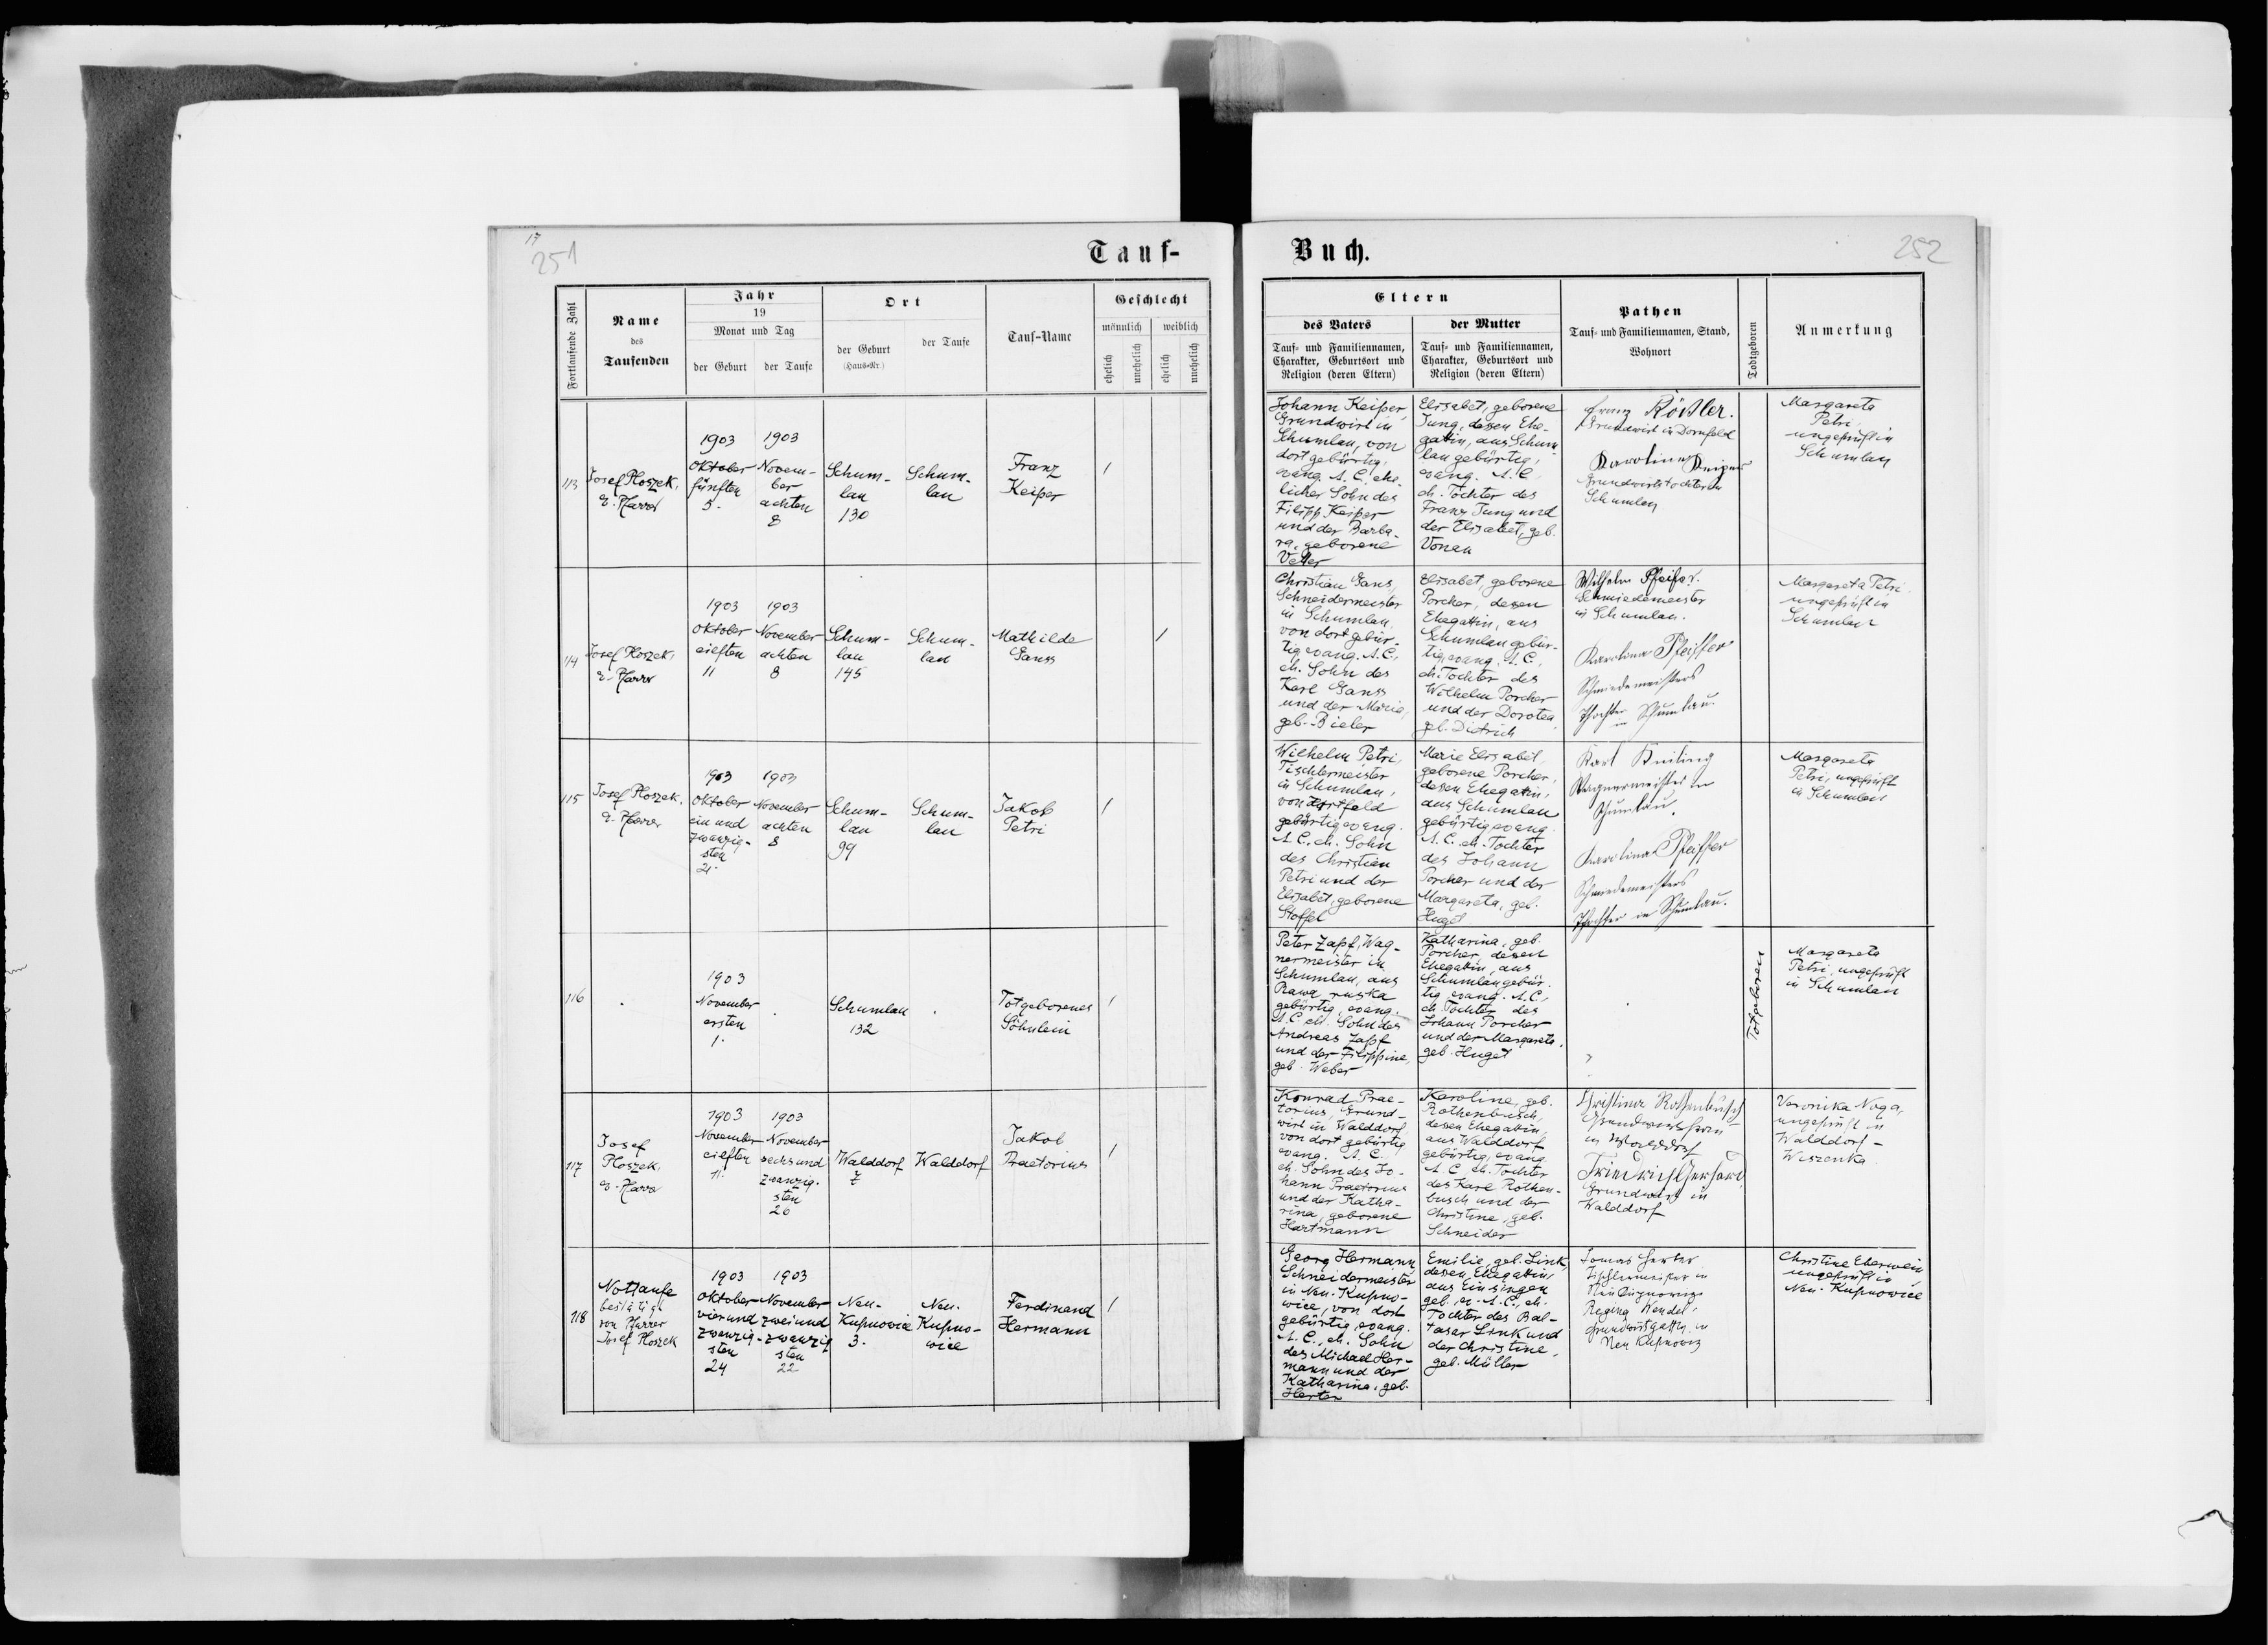 17
251
Tauf-
Fortlaufende Zahl
Name
des
Taufenden
Jahr
19
Monat und Tag
der Geburt
der Taufe
Ort
der Geburt
(Haus-Nr.)
der Taufe
Tauf-Name
Geschlecht
männlich
weiblich
ehelich
unehelich
ehelich
unehelich
113
Josef Ploszek,
e. Pfarrer
1903
Oktober
fünften
5.
1903
Novem-
ber
achten
8
Schum-
lau
130
Schum-
lau
Franz
Keiper
/
114
Josef Ploszek,
e. Pfarrer
1903
Oktober
eilften
11
1903
November
achten
8
Schum-
lau
145
Schum-
lau
Mathilde
Ganss
/
115
Josef Ploszek,
e. Pfarrer
1903
Oktober
ein und
zwanzig-
sten
21.
1903
November
achten
8
Schum-
lau
99
Schum-
lau
Jakob
Petri
/
116
1903
November
ersten
1.
Schumlau
132
Totgeborenes
Söhnlein
/
117
Josef
Ploszek,
e. Pfarrer
1903
November
eilften
11.
1903
November
sechsund
zwanzig-
sten
26
Walddorf
7
Walddorf
Jakob
Praetorius
/
118
Nottaufe
bestätigt
von Pfarrer
Josef Ploszek
1903
Oktober
vierund
zwanzig-
sten
24
1903
November
zweiund
zwanzig
sten
22
Neu-
Kupnowice
3.
Neu-
Kupno-
wice
Ferdinand
Hermann
/
Buch.
252
Eltern
des Vaters
Tauf- und Familiennamen,
Charakter, Geburtsort und
Religion (deren Eltern)
der Mutter
Tauf- und Familiennamen,
Charakter, Geburtsort und
Religion (deren Eltern)
Pathen
Tauf- und Familiennamen, Stand,
Wohnort
Todtgeboren
Anmerkung
Johann Keiper,
Grundwirt in
Schumlau, von
dort gebürtig,
evang. A. C. ehe-
licher Sohn des
Filipp Keiper
und der Barba-
ra, geborene
Vetter
Elisabet, geborene
Jung, dessen Ehe-
gattin, aus Schum-
lau gebürtig,
evang. A. C.
eh. Tochter des
Franz Jung und
der Elisabet, geb.
Vonau
Franz Rößler.
Grundwirt in Dornfeld
Karolina Keiper
Grundwirtstochter in
Schumlau
Margareta
Petri,
ungeprüft in
Schumlau
Christian Ganss,
Schneidermeister
in Schumlau,
von dort gebür-
tig, evang. A. C.,
eh. Sohn des
Karl Ganss
und der Maria,
geb. Bieler
Elisabet, geborene
Porcher, dessen
Ehegattin, aus
Schumlau gebür-
tig, evang. A. C.,
eh. Tochter des
Wilhelm Porcher
und der Dorotea,
geb. Dietrich
Wilhelm Pfeifer.
Schmiedemeister
in Schumlau.
Karolina Pfeiffer
Schmiedemeisters
Tochter in Schumlau.
Margareta Petri,
ungeprüft in
Schumlau
Wilhelm Petri,
Tischlermeister
in Schumlau,
gebürtig evang.
A. C., eh. Sohn
des Christian
Petri und der
Elisabet, geborene
Stoffel
Marie Elisabet,
geborene Porcher,
dessen Ehegattin,
aus Schumlau
gebürtig evang.
A. C. eh. Tochter
des Johann
Porcher und der
Margareta, geb.
Huget
Karl
Wagnermeister in
Schumlau.
Karolina Pfeiffer
Schmiedemeisters
Tochter in Schumlau.
Margareta
Petri, ungeprüft
in Schumlau
Peter Zapf, Wag-
nermeister in
Schumlau, aus
Rawa ruska
gebürtig, evang.
A. C. eh. Sohn des
Andreas Zapf
und der Filippine,
geb. Weber
Katharina, geb.
Porcher, dessen
Ehegattin, aus
Schumlau gebür-
tig evang. A. C.,
eh. Tochter des
Johann Porcher
und der Margareta,
geb. Huget
Totgeboren
Margareta
Petri, ungeprüft
in Schumlau
Konrad Prae-
torius, Grund-
wirt in Walddorf,
von dort gebürtig
evang. A. C.
eh. Sohn des Jo-
hann Praetorius
und der Katha-
rina, geborene
Hartmann
Karoline, geb.
Rothenbusch,
dessen Ehegattin,
aus Walddorf
gebürtig, evang.
A. C. eh. Tochter
des Karl Rothen-
busch und der
Christine, geb.
Schneider
Christina Rothenbusch
in Walddorf
Friedrich Gerhard,
Grundwirt in
Walddorf
Veronika Noga,
ungeprüft in
Walddorf-
Wiszenka
Georg Hermann
Schneidermeister
in Neu-Kupno-
wice, von dort
gebürtig evang.
A. C., eh. Sohn
des Michael Her-
mann und der
Katharina, geb.
Herter
Emilie, geb. Link,
dessen Ehegattin,
aus Einsingen
geb. ev. A. C., eh.
Tochter des Bal-
tasar Link und
der Christine,
geb. Müller
Tomas Herter
Tischlermeister in
Regina Wendel,
Grundwirtsgattin in
Neu Kupnowice
Christine Eberwein
ungeprüft in
Neu-Kupnowice